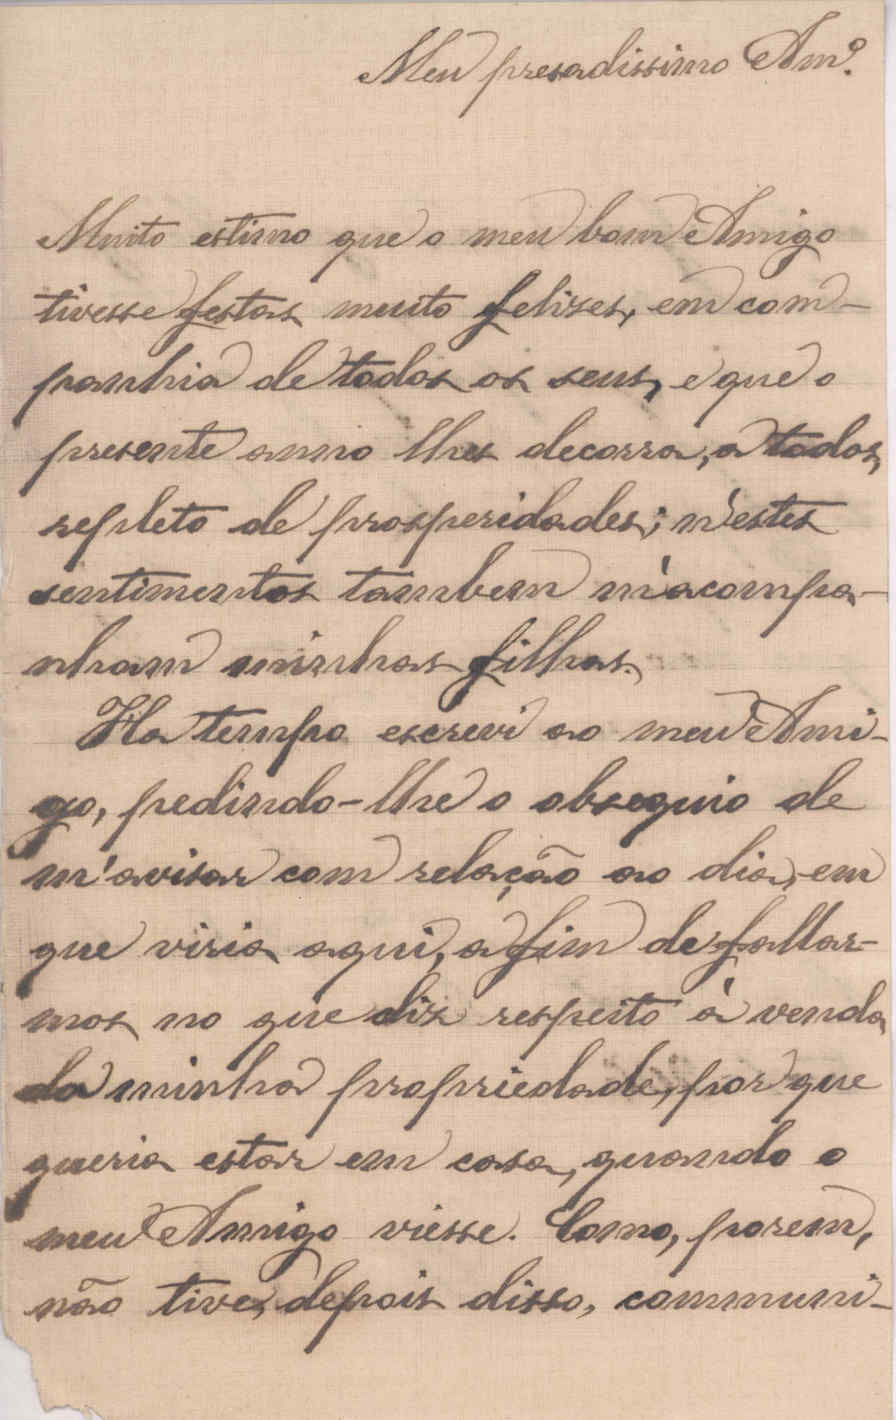 Meu presadissimo Amº.
Muito estimo que o meu bom Amigo
tivesse festas muito felizes, em com-
panhia de todos os seus, e que o
presente anno lhes decorra, a todos,
repleto de prosperidades; n'estes
sentimentos tambem m'acompa-
nham minhas filhas.
Ha tempo escrevi ao meu Ami-
go, pedindo-lhe o obsequio de
m'avisar com relação ao dia, em
que viria aqui, a fim de fallar-
mos no que diz respeito á venda
da minha propriedade, por que
queria estar em casa, quando o
meu Amigo viesse. Como, porem,
não tive, depois disso, communi-